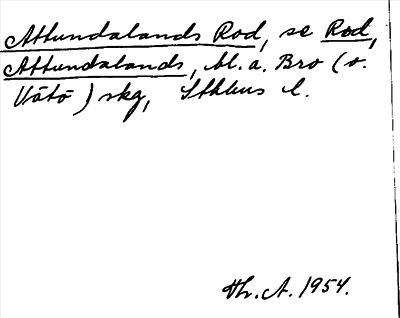 Attundalands Rod, se Rod,
Attundalands, bl. a. Bro (o.
Vätö) skg, Sthlms l.
Th. A. 1954.